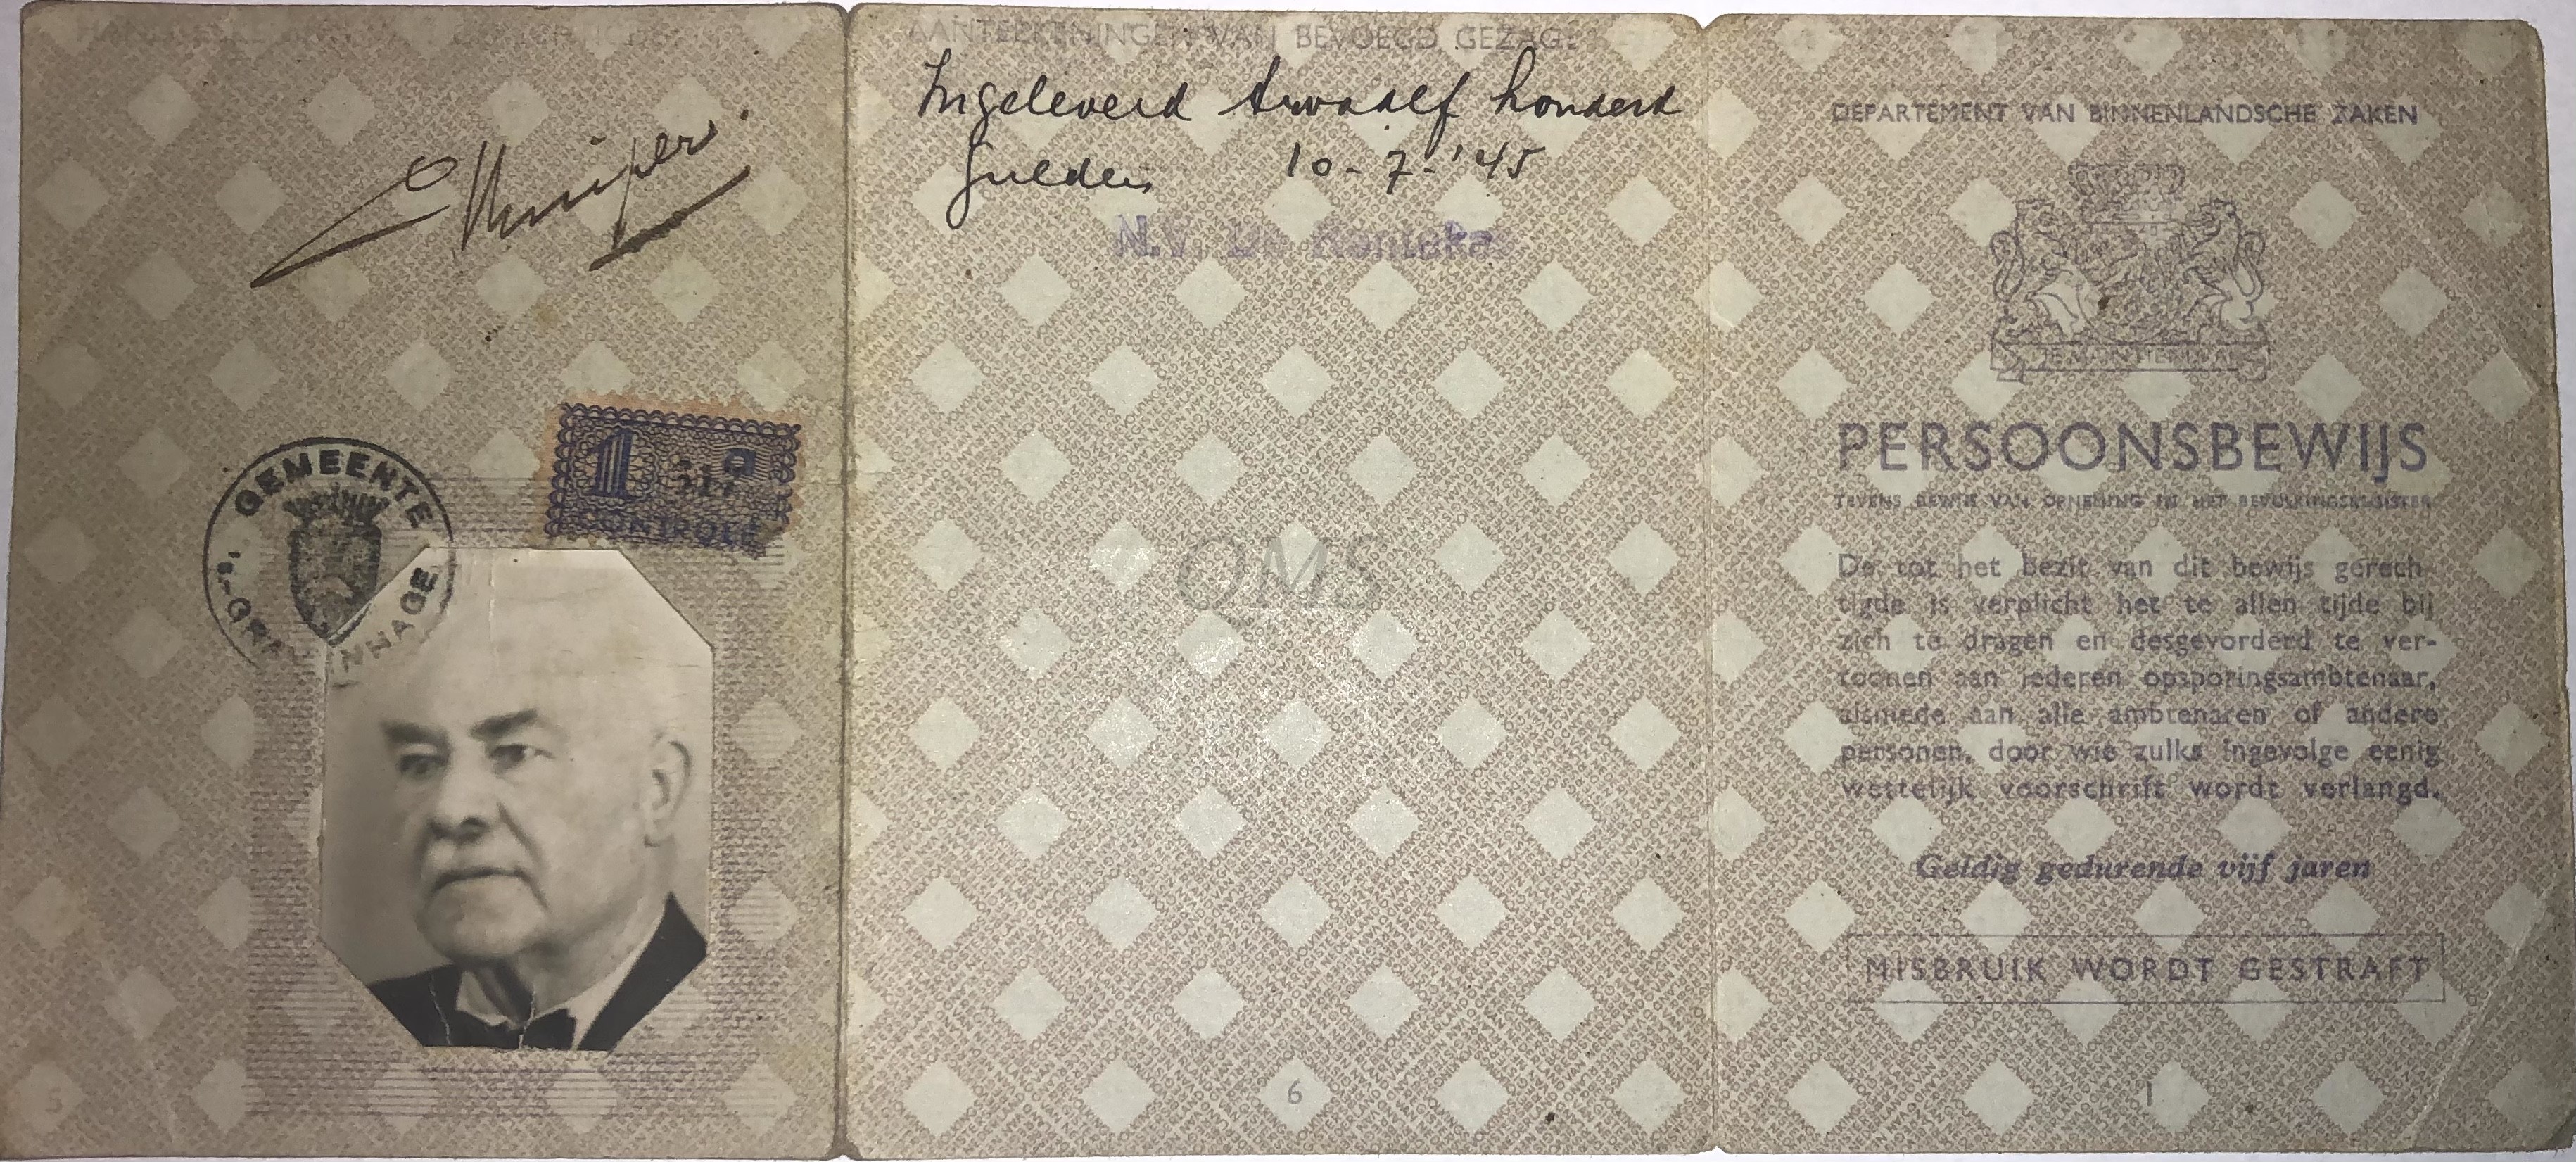 Kuiper.
1 a
CONTROLE
GEMEENTE
5
AANTEEKENINGEN VAN BEVOEGD GEZAG
Ingeleverd twaalf honderd
gulden 10-7-'45
N.V. De
QMS
6
DEPARTEMENT VAN BINNENLANDSCHE ZAKEN
JE MAINTIENDRAI
PERSOONSBEWIJS
TEVENS BEWIJS VAN OPNEMING IN HET BEVOLKINGSREGISTER
De tot het bezit van dit bewijs gerech-
tigde is verplicht het te allen tijde bij
zich te dragen en desgevorderd te ver-
toonen aan iederen opsporingsambtenaar,
alsmede aan alle ambtenaren of andere
personen, door wie zulks ingevolge eenig
wettelijk voorschrift wordt verlangd.
Geldig gedurende vijf jaren
MISBRUIK WORDT GESTRAFT
1